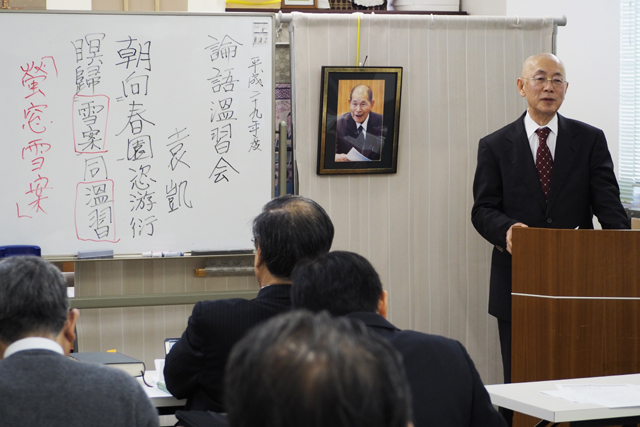 平成二十九年度
論語温習会
袁凱
朝向春園恣游衍
瞑歸雪案同温習
「螢窓雪案」